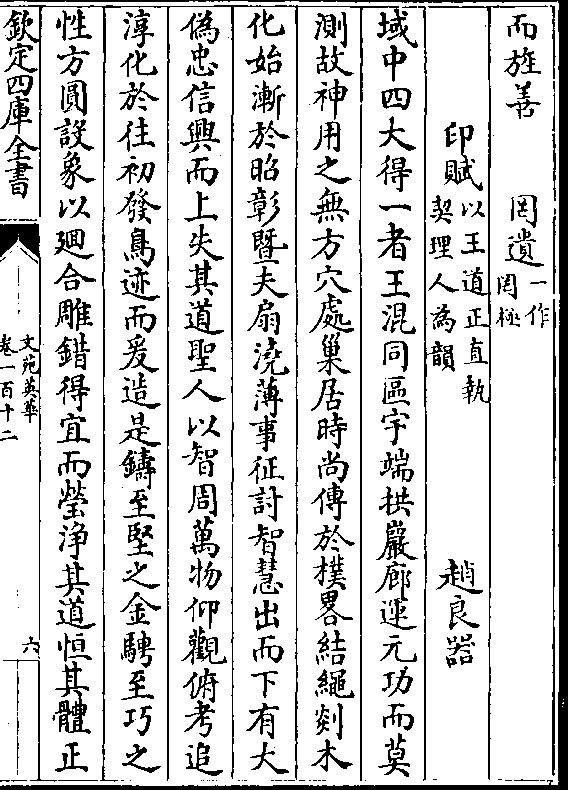 而旌善　　罔遺一作罔極
印賦以王道正直執契理人為韻　　趙良器
域中四大得一者王混同區宇端拱巖廊運元功而莫
測故神用之無方穴處巢居時尚傳於樸畧結繩剡木
化始漸於昭彰暨夫扇澆薄事征討智慧出而下有大
偽忠信興而上失其道聖人以智周萬物仰觀俯考追
淳化於往初發鳥迹而爰造是鑄至堅之金騁至巧之
性方圓設象以廻合雕錯得宜而瑩淨其道恒其體正
欽定四庫全書
文苑英華
卷一百十二
六